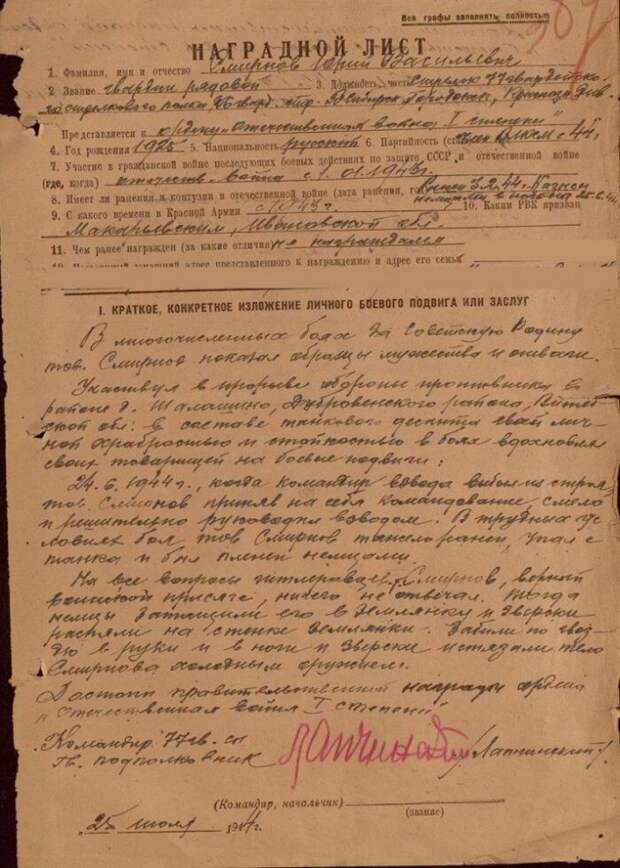 Все графы заполнять полностью
387
НАГРАДНОЙ ЛИСТ
1. Фамилия, имя и отчество Смирнов Юрий Васильевич
2. Звание гвардии рядовой 3. Должность, часть Стрелок 77 гвардейско-
го стрелкового полка, 26 гвард. стр. Сибирск. Городокск. Краснозн. див.
Представляется к ордену „Отечественная война I степени"
4. Год рождения 1925 5. Национальность русский 6. Партийность член ВЛКСМ с
7. Участие в гражданской войне последующих боевых действиях по защите СССР и отечественной войне
(где, когда) отечеств. война с 1.01.1943г.
8. Имеет ли ранения и контузии в отечественной войне (дата ранения, го ранен 44г. Казнен
немцами 25.6.44
9. С какого времени в Красной Армии с 1943г 10. Каким РВК призван
Макарьевским, Ивановской обл.
11. Чем ранее награжден (за какие отличия) не награждался
I. КРАТКОЕ, КОНКРЕТНОЕ ИЗЛОЖЕНИЕ ЛИЧНОГО БОЕВОГО ПОДВИГА ИЛИ ЗАСЛУГ
В многочисленных боях за Советскую Родину
тов. Смирнов показал образцы мужества и отваги.
Участвуя в прорыве обороны противника в
районе д. Шалашино, Дубровенского района, Витеб-
ской обл. в составе танкового десанта своей лич-
ной храбростью и стойкостью в боях вдохновлял
своих товарищей на боевые подвиги:
24.6.1944г., когда командир взвода выбыл из строя,
тов. Смирнов принял на себя командование, смело
и решительно руководил взводом. В трудных ус-
ловиях боя тов Смирнов тяжело ранен, упал с
танка и был пленен немцами.
На все вопросы гитлеровцев Смирнов, верный
воинской присяге, ничего не отвечал. Тогда
немцы затащили его в землянку и зверски
распяли на стенке землянки. Забили по гвоз-
дю в руки и в ноги и зверски истязали тело
Смирнова холодным оружием.
Достоин правительственной награды ордена
„Отечественная война I степени"
Командир 77 гв. сп
гв. подполковник /Лапчинский/
(Командир, начальник) (звание)
25 июля 1944г.